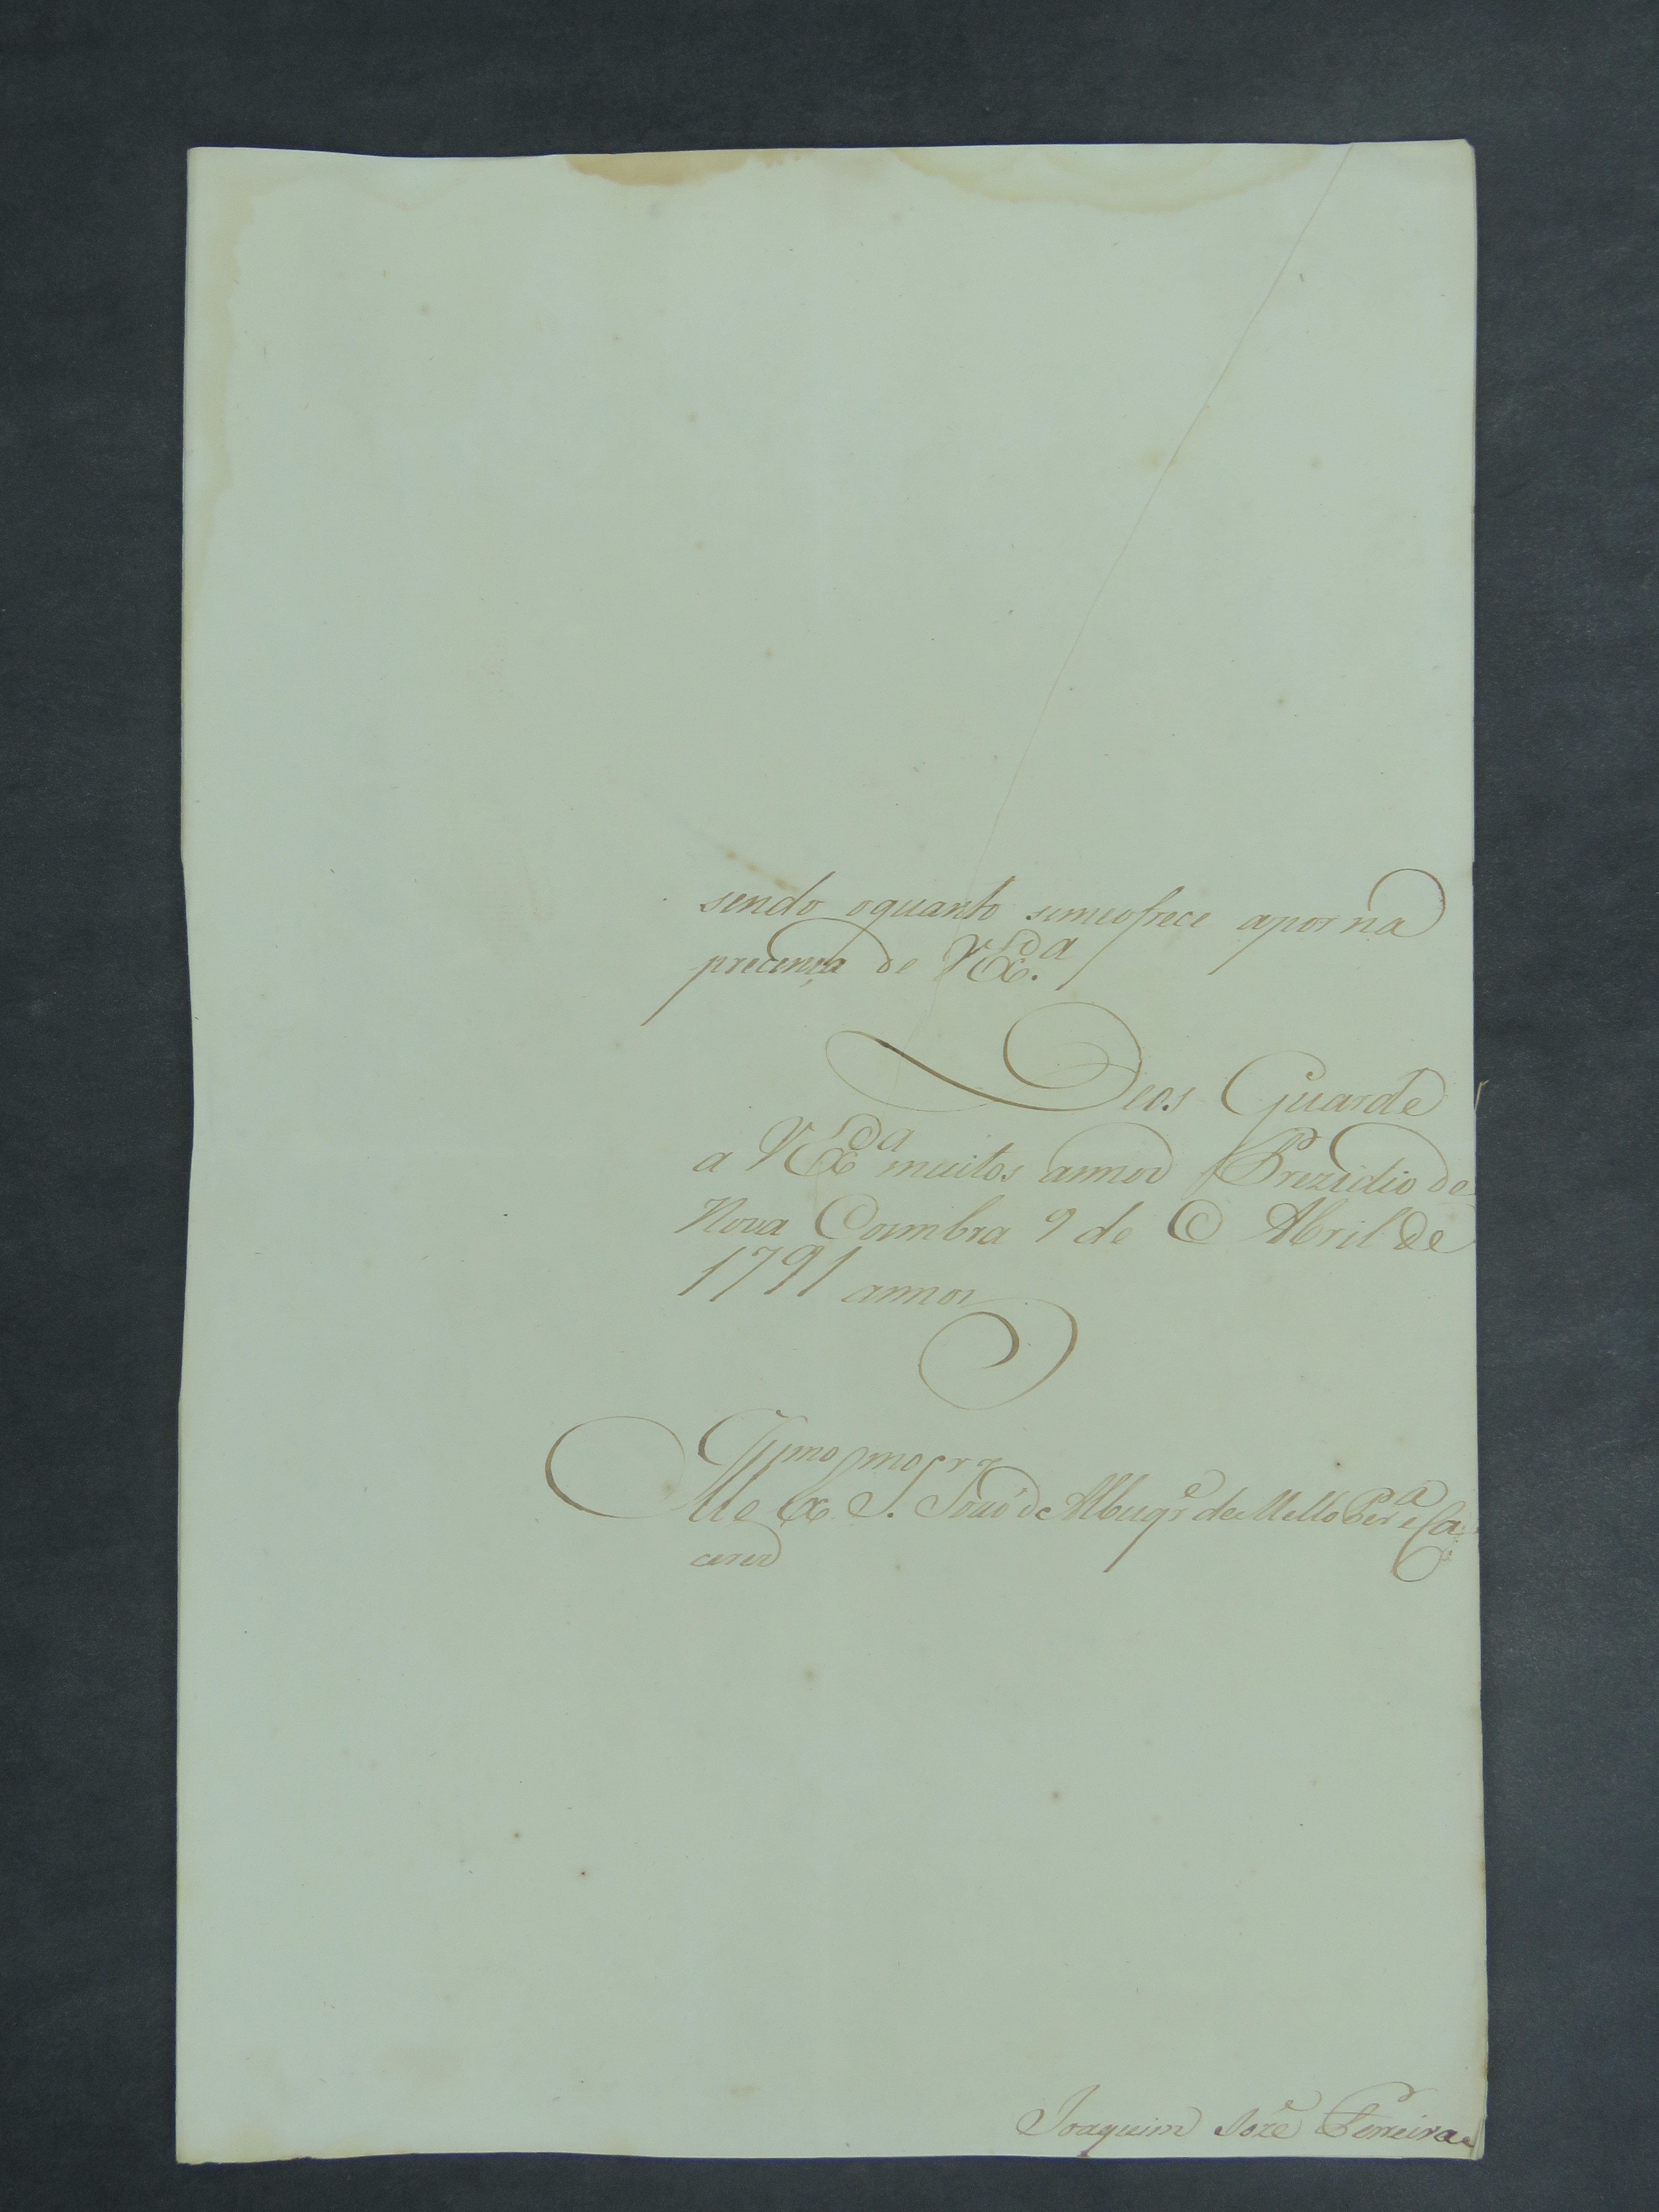 sendo oquanto semeofrece apor na
precença de VExª.
Deos Guarde
a VExª muitos annos Prezidio de
Nova Coimbra 9 de Abril de
1791 annos
Illmo e Exmo Snr. João de Albuqᵉ de Mello Perª e Ca
ceres
Joaquim Jozé Ferreira